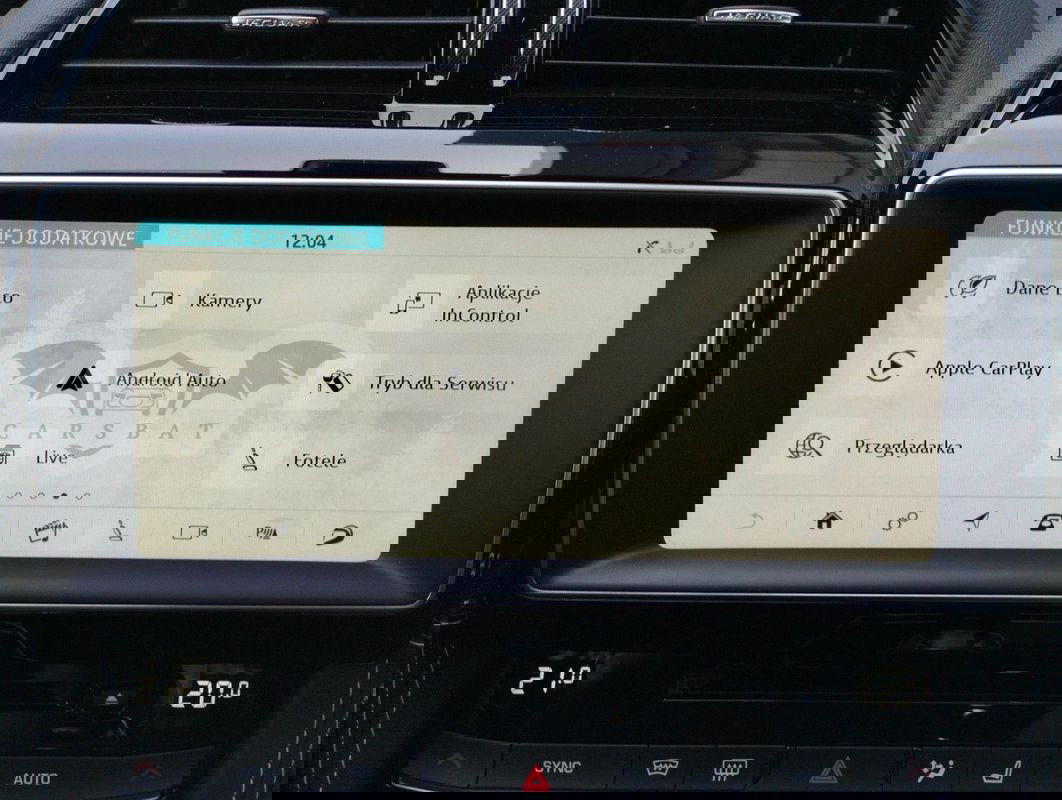 FUNKCJE DODATKOWE
12:04
Dane Eco
Kamery
Aplikacje
InControl
Android Auto
Tryb dla Serwisu
Apple CarPlay
CARSBAT
Live
Fotele
Przeglądarka
21.0
20.0
AUTO
SYNC